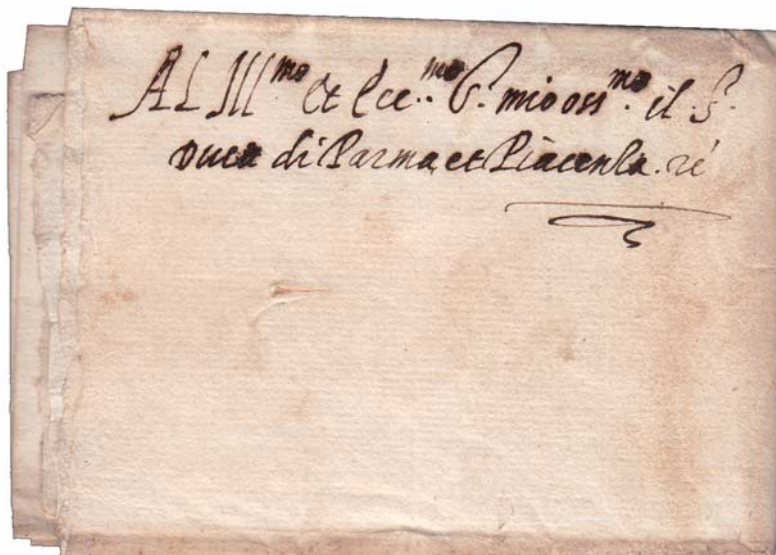 Al Ill.mo et Ecc.mo S.r mio oss.mo il S.r
Duca di Parma, et Piacenza. &c